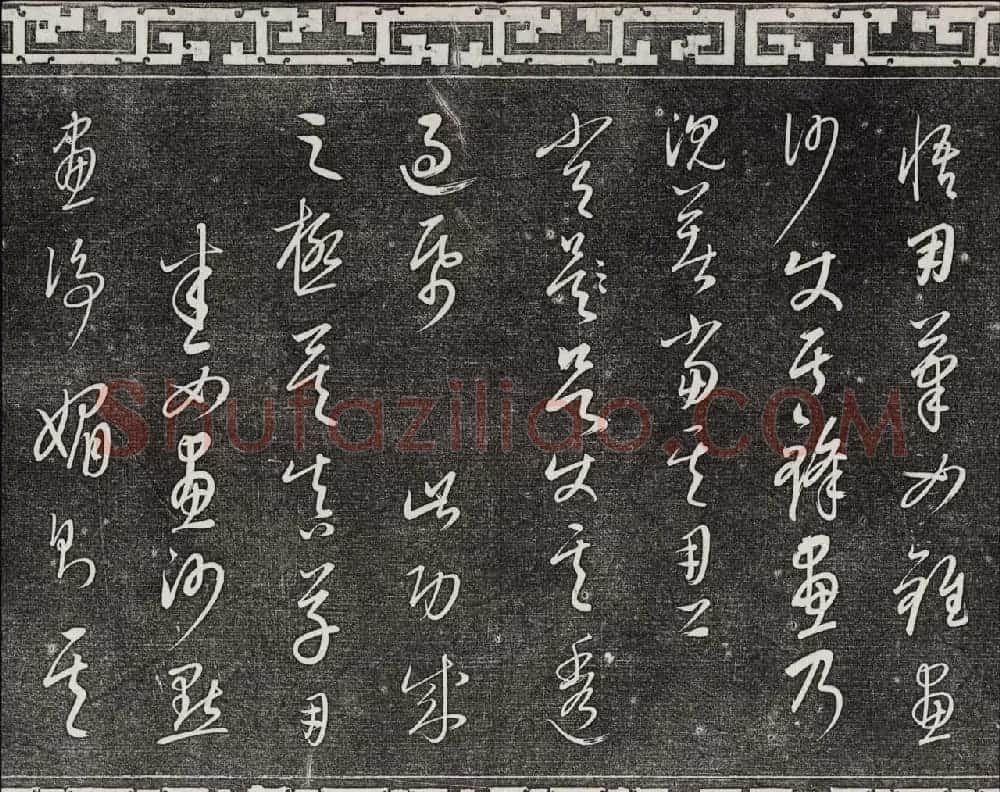 悟用筆如錐畫
沙使其鋒畫乃
沉著當其用
常使其透
過紙此功成
之極矣真草用
如畫沙點
畫淨媚則其
Shufaziliao.COM